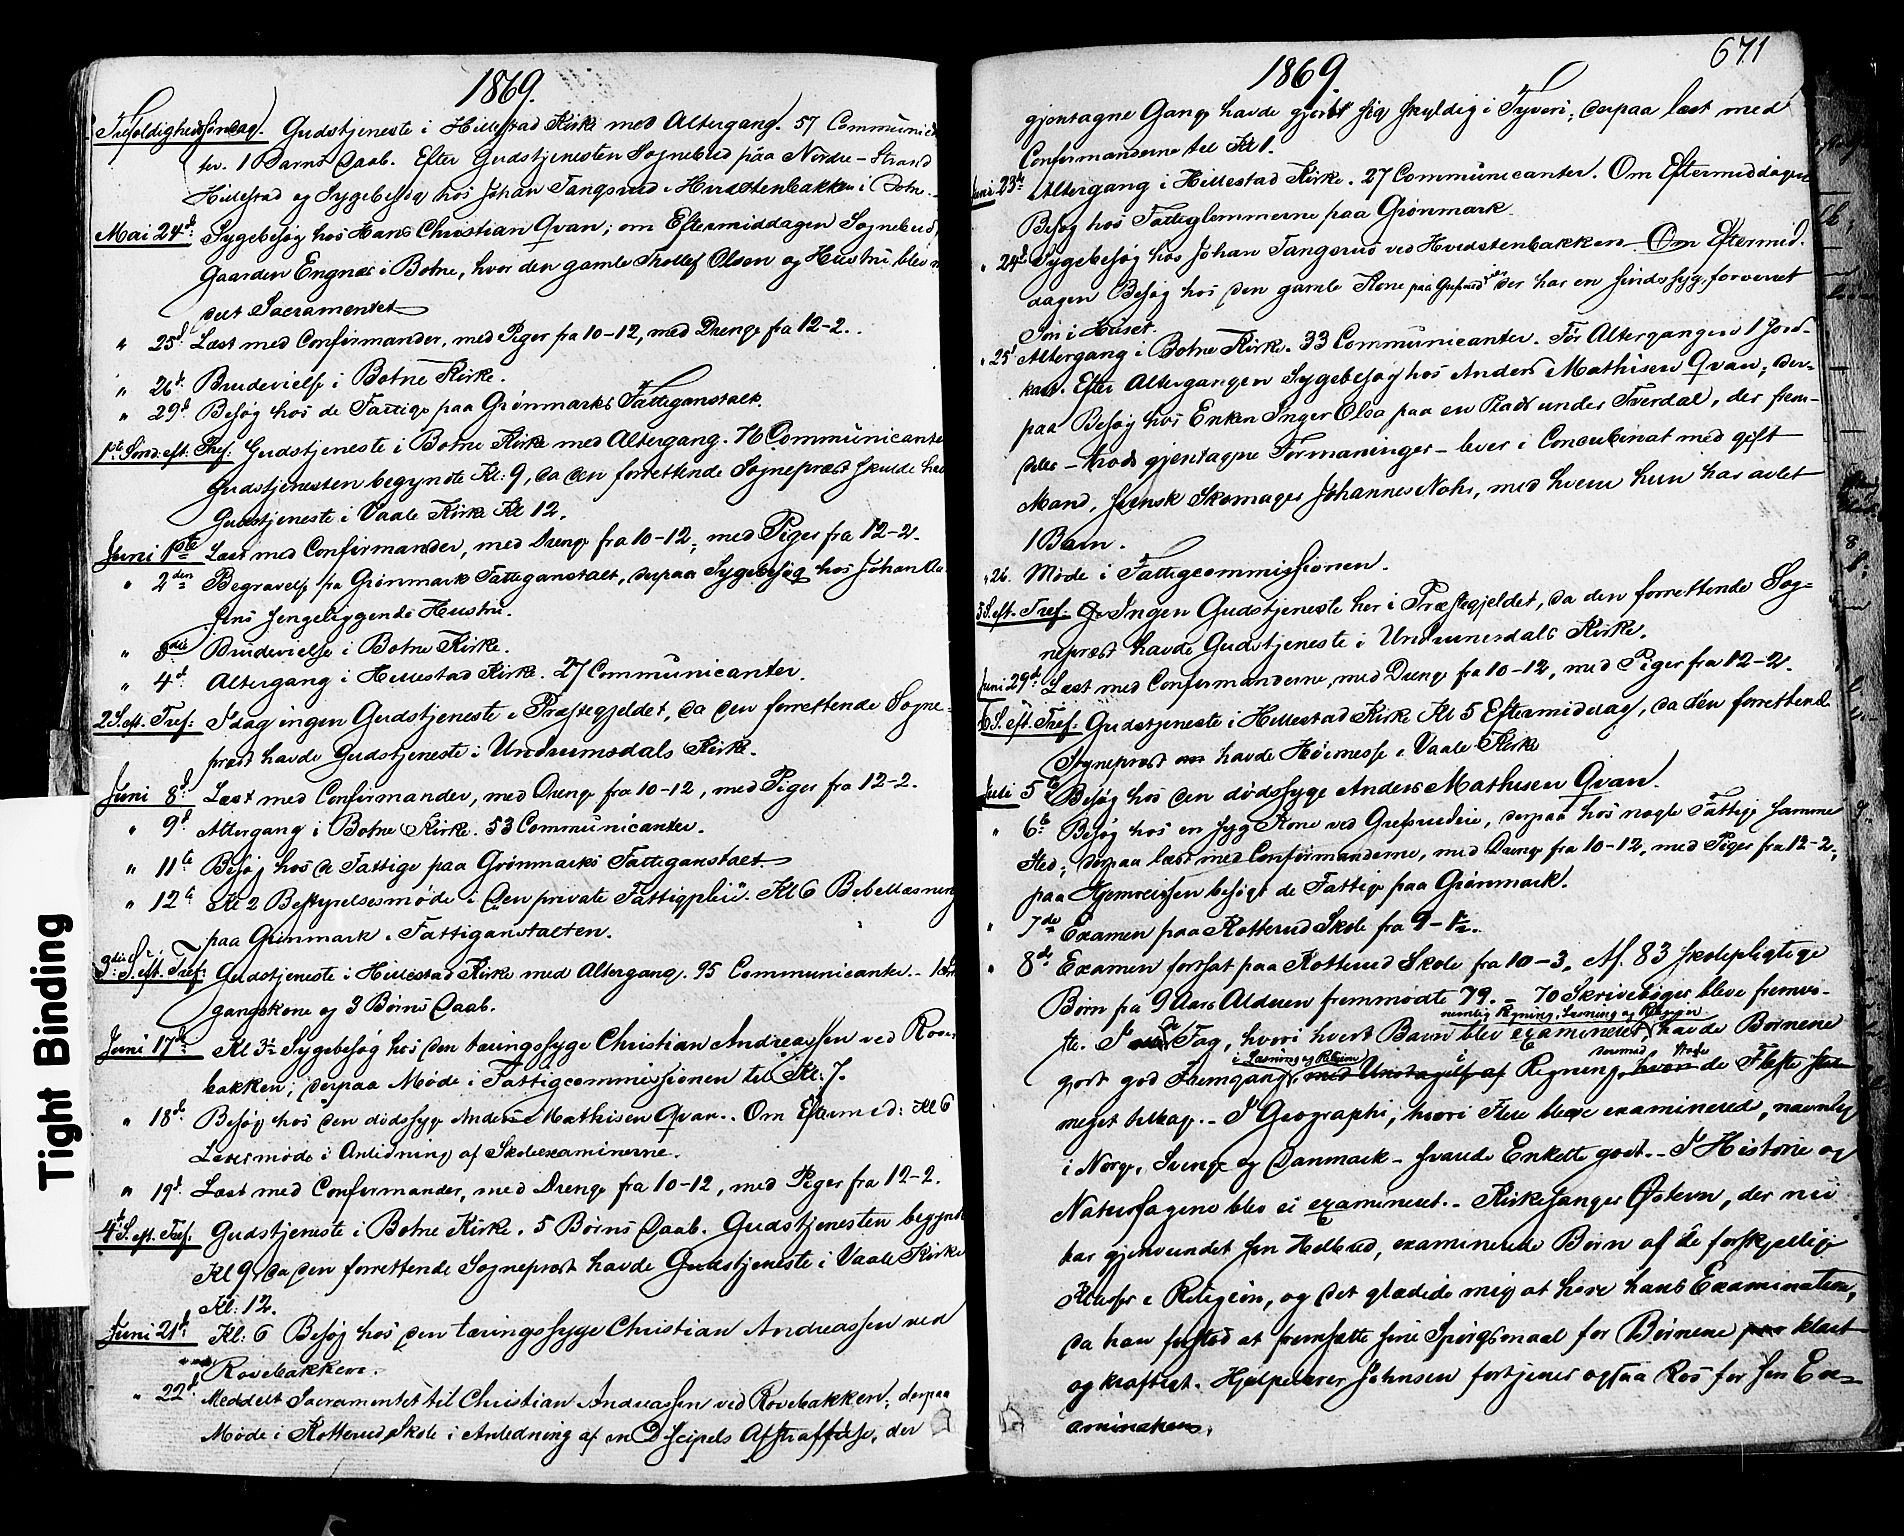 1869.
Trefoldighedssøndag. Gudstjeneste i Hillestad Kirke med Altergang. 57 Communican
ter. 1 Barns Daab. Efter Gudstjenesten Sognebud paa Nordre-Strand
Hillestad og Sygebesøg hos Johan Tangsrud i Hvidstenbakken i Botne.
Mai 24d. Sygebesøg hos Hans Christian Qvan; om Eftermiddagen Sognebud,
Gaarden Engnæs i Botne, hvor den gamle Thollef Olsen og Hustru blev m
delt Sacramentet
" 25d. Læst med Confirmander, med Piger fra 10-12, med Drenge fra 12-2.
" 26d. Brudevielse i Botne Kirke.
" 29d. Besøg hos de Fattige paa Grønmarks Fattiganstalt.
1ste Sønd. eft. Tref: Gudstjeneste i Botne Kirke med Altergang. 76 Communicanter
Gudstjenesten begyndte Kl: 9, da den forrettende Sognepræst skulde hav
Gudstjeneste i Vaale Kirke Kl 12.
Juni 1ste Læst med Confirmander, med Drenge fra 10-12, med Piger fra 12-2.
" 2den Begravelse fra Grønmark Fattiganstalt, derpaa Sygebesøg hos Johan Aa
sens sengeliggende Hustru.
" 3die Brudevielse i Botne Kirke.
" 4d. Altergang i Hillestad Kirke. 27 Communicanter.
2 S. eft. Tref: Idag ingen Gudstjeneste i Præstegjeldet, da den forrettende Sogne-
præst havde Gudstjeneste i Undrumsdals Kirke.
Juni 8d. Læst med Confirmander, med Drenge fra 10-12, med Piger fra 12-2.
" 9d. Altergang i Botne Kirke. 53 Communicanter.
" 11te Besøg hos de Fattige paa Grønmarks Fattiganstalt.
" 12te Kl 2 Bestyrelsesmøde i den private Fattigpleie. Kl 6 Bibellæsning
paa Grønmark. Fattiganstalten.
3die S. eft. Tref: Gudstjeneste i Hillestad Kirke med Altergang. 95 Communicanter. - 1
gangskone og 3 Børns Daab.
Juni 17d. Kl 3½ Sygebesøg hos den tæringssyge Christian Andreassen ved Rove-
bakken; derpaa Møde i Fattigcommissionen til Kl: 7.
" 18d. Besøg hos den dødssyge Anders Mathisen Qvan. Om Eftermid: Kl 6
Læsermøde i Anledning af Skoleexaminerne.
" 19d. Læst med Confirmander, med Drenge fra 10-12, med Piger fra 12-2.
4de S. eft. Tref: Gudstjeneste i Botne Kirke. 5 Børns Daab. Gudstjenesten begyndte
Kl 9, da den forrettende Sognepræst havde Gudstjeneste i Vaale Kirke
Kl: 12.
Juni 21d. Kl: 6 Besøg hos den tæringssyge Christian Andreassen ved
Rovebakken.
" 22d. Meddelt Sacramentet til Christian Andreassen ved Rovebakken; derpaa
Møde i Kotterud Skole i Anledning af en Discipels Afstraffelse, der
Tight Binding
671
1869.
gjentagne Gange havde gjort sig skyldig i Tyveri; derpaa læst med
Confirmanderne til Kl 1.
Juni 23de Altergang i Hillestad Kirke. 27 Communicanter. Om Eftermiddagen
Besøg hos Fattiglemmerne paa Grønmark.
" 24d. Sygebesøg hos Johan Tangsrud ved Hvidstenbakken. Om Eftermid-
dagen Besøg hos den gamle Kone paa der har en sindssyg, forvent
Søn i Huset.
" 25d Altergang i Botne Kirke. 33 Communicanter. Før Altergangen 1 Jord-
kast. Efter Altergangen Sygebesøg hos Anders Mathisen Qvan; der-
paa Besøg hos Enken Inger Olsa paa en Plads under Tverdal, der frem-
deles - trods gjentagne Formaninger - lever i Concubinat med gift
Mand, svensk Skomager Johannes Nohs, med hvem hun har avlet
1 Barn.
" 26. Møde i Fattigcommissionen.
5 S. eft. Tref: Ingen Gudstjeneste her i Præstegjeldet, da den forrettende Sog-
nepræst havde Gudstjeneste i Undrumsdals Kirke.
Juni 29d. Læst med Confirmanderne, med Drenge fra 10-12, med Piger fra 12-2.
6 S. eft. Tref: Gudstjeneste i Hillestad Kirke Kl 5 Eftermiddag, da den forrettende
Sognepræst havde Høimesse i Vaale Kirke
Juli 5te Besøg hos den dødssyge Anders Mathisen Qvan.
" 6te Besøg hos en syg Kone ved Grefsrudeie, derpaa hos nogle Fattige samme
Sted; derpaa læst med Confirmanderne, med Drenge fra 10-12, med Piger fra 12-2;
paa Hjemreisen besøgt de Fattige paa Grønmark.
" 7de Examen paa Kotterud Skole fra 9-1½.
" 8de Examen fortsat paa Kotterud Skole fra 10-3. Af 83 skolepligtige
Børn fra 9 Aars Alderen fremmødte 79. - 70 Skrivebøger bleve fremvi-
nemlig Regning, Læsning og Religion
ste. I de Fag, hvori hvert Barn blev examineret, havde Børnene
i Læsning og Religion
gjort god Fremgang, med Undtagelse af i Regning, hvori de Fleste stode
meget tilbage. - I Geographi, hvori Flere bleve examinerede, navnlig
i Norge, Sverige og Danmark - svarede Enkelte godt. - I Historie og
Naturfagene blev ei examineret. - Kirkesanger Østern, der nu
har gjenvundet sin Helbred, examinerede Børn af de forskjellige
Klasser i Religion, og det glædede mig at høre hans Examination,
da han forstod at fremsætte sine Spørgsmaal for Børnene klart
og kraftigt. Hjelpelærer Johnsen fortjener ogsaa Ros for sin Ex-
amination.